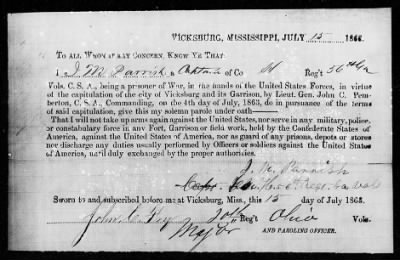 VICKSBURG, MISSISSIPPI, JULY 15 1863.
TO ALL WHOM IT MAY CONCERN, KNOW YE THAT:
I J. M. Parrish a Captain of Co H Reg't 56th Ga
Vols. C. S. A., being a prisoner of War, in the hands of the United States Forces, in virtue
of the capitulation of the city of Vicksburg and its Garrison, by Lieut. Gen. John C. Pem-
berton, C. S. A., Commanding, on the 4th day of July, 1863, do in pursuance of the terms
of said capitulation, give this my solemn parole under oath—
That I will not take up arms again against the United States, nor serve in any military, police,
or constabulary force in any Fort, Garrison or field work, held by the Confederate States of
America, against the United States of America, nor as guard of any prisons, depots or stores
nor discharge any duties usually performed by Officers or soldiers against the United States
of America, until duly exchanged by the proper authorities.
J. M. Parrish
Capt. Co. H 56 Regt Ga Vols
Sworn to and subscribed before me at Vicksburg, Miss., this 15 day of July 1863.
John C. Fry 20th Reg't Ohio Vols.
Major AND PAROLING OFFICER.